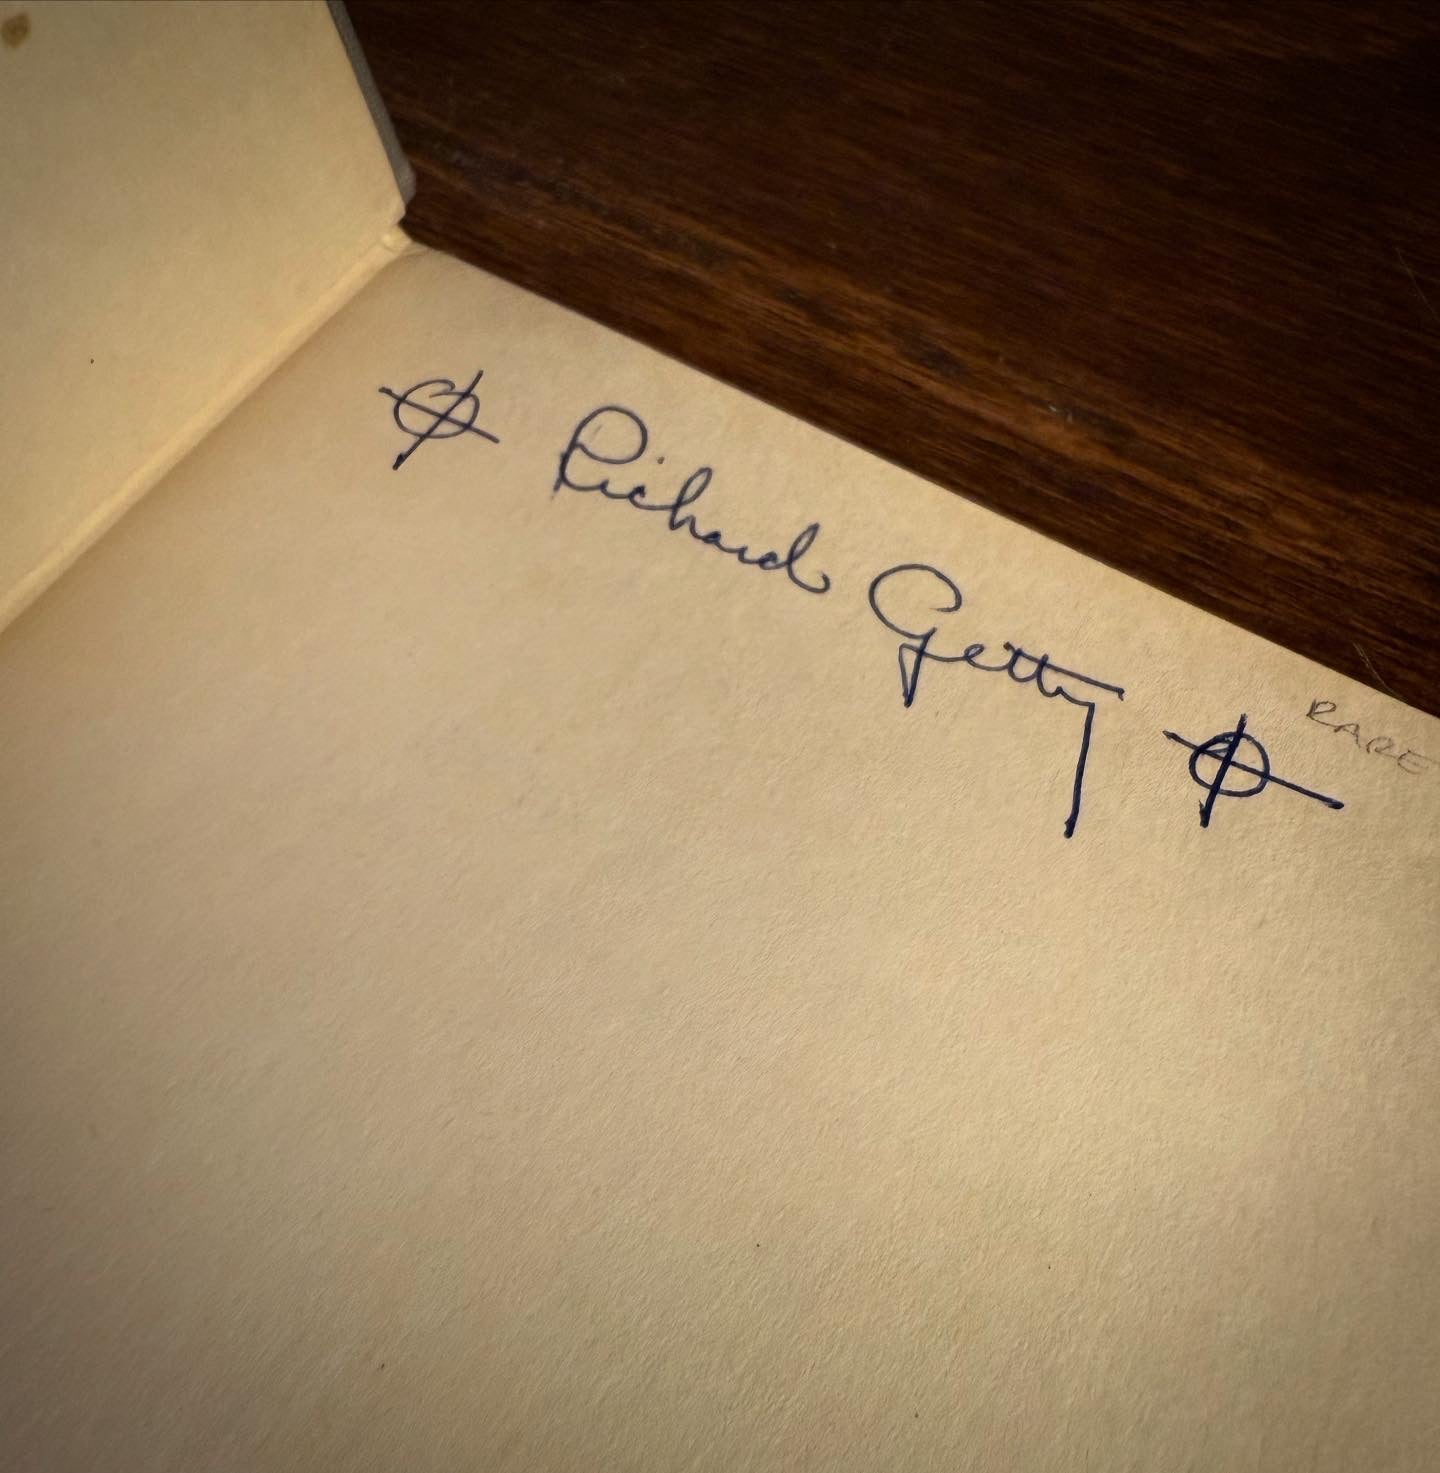 Richard Getty
RARE